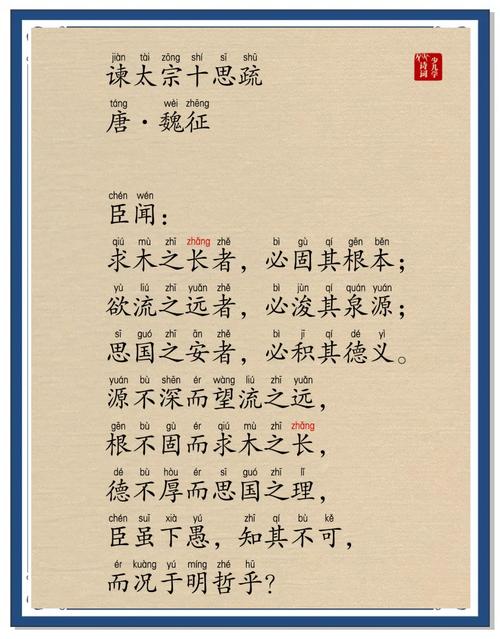 jiàn tài zōng shí sī shū
谏太宗十思疏
táng wèi zhēng
唐·魏征
少儿学
诗词
chén wén
臣闻：
qiú mù zhī zhǎng zhě bì gù qí gēn běn
求木之长者，必固其根本；
yù liú zhī yuǎn zhě bì jùn qí quán yuán
欲流之远者，必浚其泉源；
sī guó zhī ān zhě bì jī qí dé yì
思国之安者，必积其德义。
yuán bù shēn ér wàng liú zhī yuǎn
源不深而望流之远，
gēn bù gù ér qiú mù zhī zhǎng
根不固而求木之长，
dé bù hòu ér sī guó zhī lǐ
德不厚而思国之理，
chén suī xià yú zhī qí bù kě
臣虽下愚，知其不可，
ér kuàng yú míng zhé hū
而况于明哲乎？